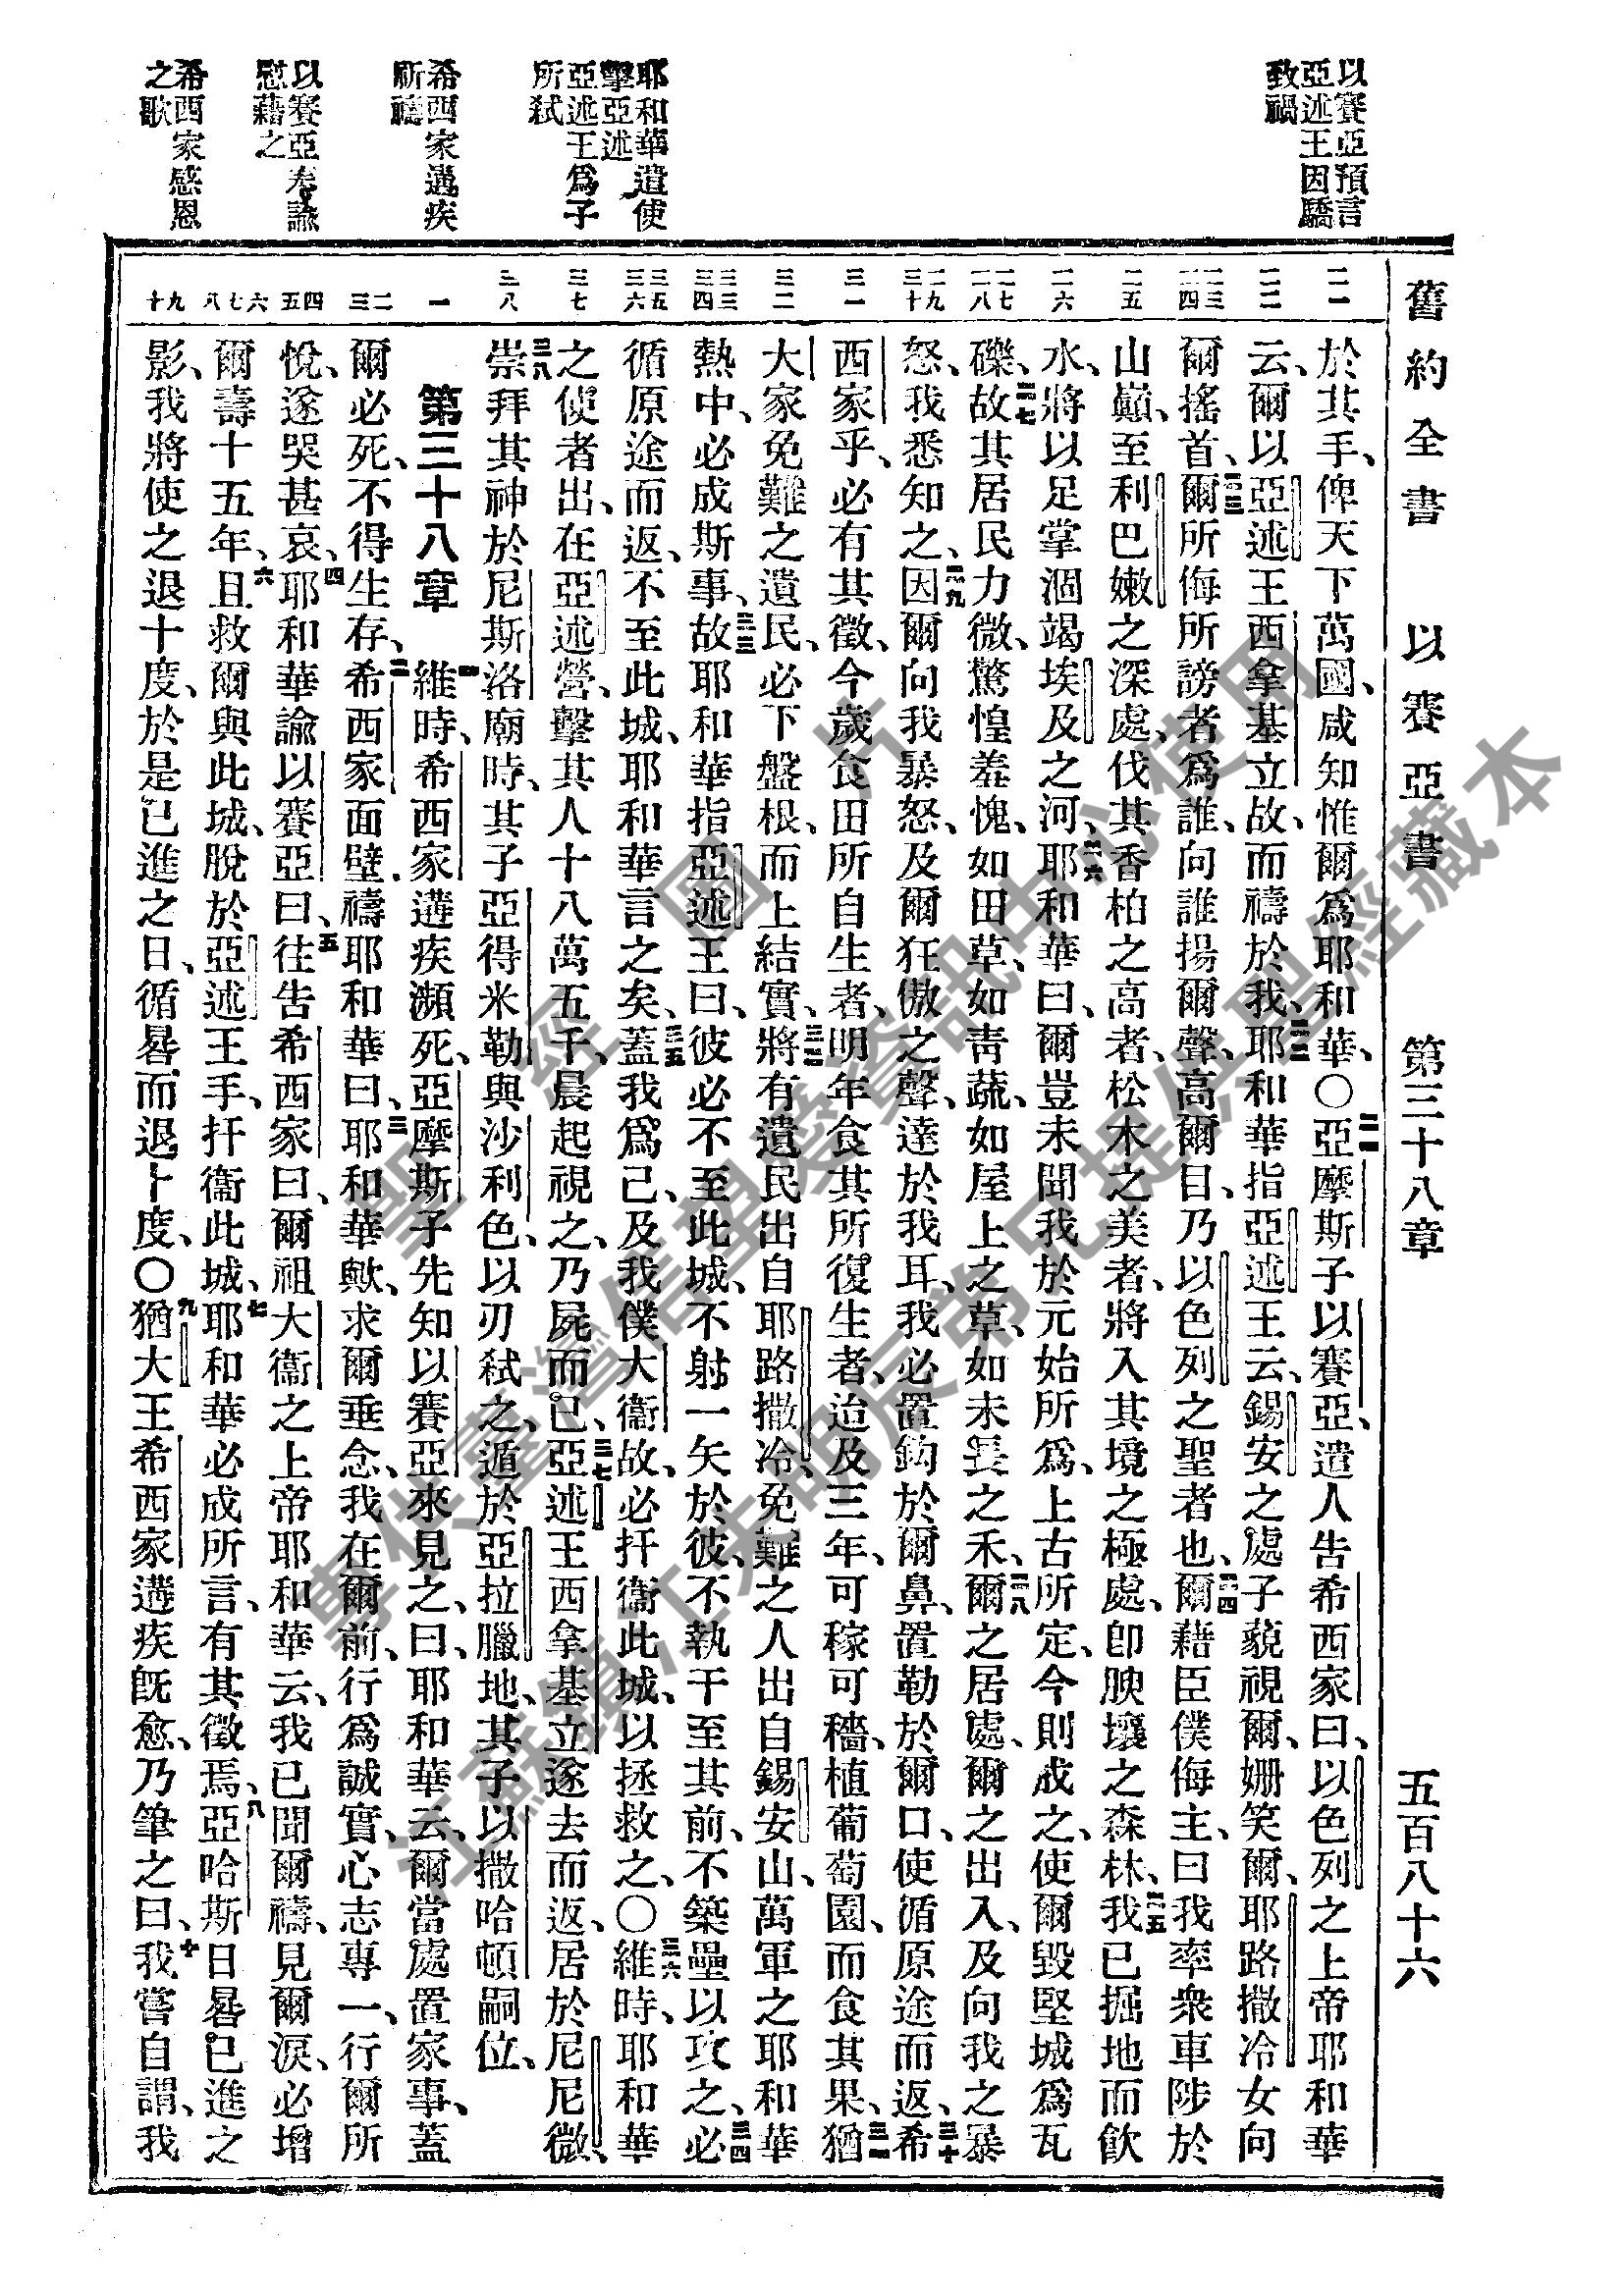 舊約全書　以賽亞書　第三十八章　五百八十六
以賽亞預言
亞述王因驕
致禍
耶和華遣使
擊亞述
亞述王爲子
所弒
希西家遘疾
祈禱
以賽亞奉諭
慰藉之
希西家感恩
之歌
二一
二二
二三 二四
二五
二六
二七 二八
二九 三十
三一
三二
三三 三四
三五 三六
三七
三八
一
二 三
四 五
六 七 八
九 十
於其手、俾天下萬國、咸知惟爾爲耶和華、〇二一亞摩斯子以賽亞、遣人告希西家曰、以色列之上帝耶和華
云、爾以亞述王西拿基立故、而禱於我、二二耶和華指亞述王云、錫安之處子藐視爾、姍笑爾、耶路撒冷女向
爾搖首、二三爾所侮所謗者爲誰、向誰揚爾聲、高爾目、乃以色列之聖者也、二四爾藉臣僕侮主、曰我率衆車陟於
山巔、至利巴嫩之深處、伐其香柏之高者、松木之美者、將入其境之極處、卽腴壤之森林、二五我已掘地而飮
水、將以足掌涸竭埃及之河、二六耶和華曰、爾豈未聞我於元始所爲、上古所定、今則成之、使爾毀堅城爲瓦
礫、二七故其居民力微、驚惶羞愧、如田草、如靑蔬、如屋上之草、如未長之禾、二八爾之居處、爾之出入、及向我之暴
怒、我悉知之、二九因爾向我暴怒、及爾狂傲之聲、達於我耳、我必置鈎於爾鼻、置勒於爾口、使循原途而返、三十希
西家乎、必有其徵、今歲食田所自生者、明年食其所復生者、迨及三年、可稼可穡、植葡萄園、而食其果、三一猶
大家免難之遺民、必下盤根、而上結實、三二將有遺民出自耶路撒冷、免難之人出自錫安山、萬軍之耶和華
熱中、必成斯事、三三故耶和華指亞述王曰、彼必不至此城、不射一矢於彼、不執干至其前、不築壘以攻之、三四必
循原途而返、不至此城、耶和華言之矣、三五蓋我爲己、及我僕大衞故、必扞衞此城、以拯救之、〇三六維時、耶和華
之使者出、在亞述營、擊其人十八萬五千、晨起視之、乃屍而已、三七亞述王西拿基立遂去而返、居於尼尼微、
三八崇拜其神於尼斯洛廟時、其子亞得米勒與沙利色、以刃弒之、遁於亞拉臘地、其子以撒哈頓嗣位、
第三十八章　一維時、希西家遘疾瀕死、亞摩斯子先知以賽亞來見之、曰、耶和華云、爾當處置家事、蓋
爾必死、不得生存、二希西家面壁、禱耶和華曰、三耶和華歟、求爾垂念、我在爾前、行爲誠實、心志專一、行爾所
悅、遂哭甚哀、四耶和華諭以賽亞曰、五往告希西家曰、爾祖大衞之上帝耶和華云、我已聞爾禱、見爾淚、必增
爾壽十五年、六且救爾與此城、脫於亞述王手、扞衞此城、七耶和華必成所言、有其徵焉、八亞哈斯日晷已進之
影、我將使之退十度、於是已進之日、循晷而退十度、〇九猶大王希西家遘疾旣愈、乃筆之曰、十我嘗自謂、我
聖經圖片
專供臺灣信望愛資訊中心使用
江蘇鎮江朱明辰弟兄提供聖經藏本